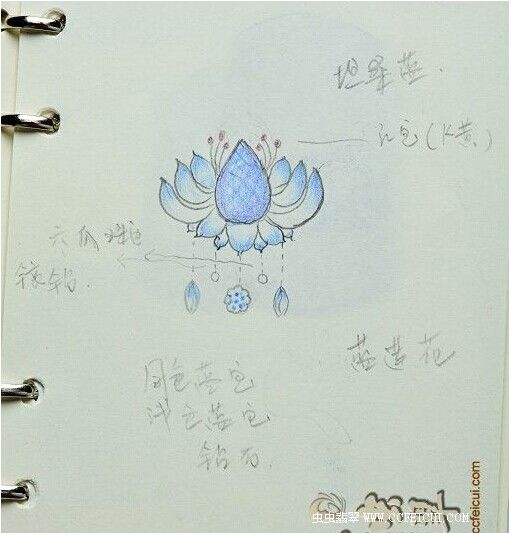 坦桑蓝.
红宝(K黄.)
六爪
镶钻.
蓝莲花
同色蓝宝
浅色蓝宝
钻石.
虫虫翡翠 WWW.CCFEICUI.COM
ccfeicui.com